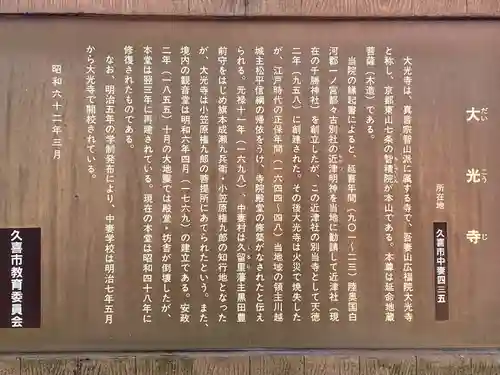 大光寺
だいこうじ
所在地 久喜市中妻四三五
大光寺は、真言宗智山派に属する寺で、吾妻山広福院大光寺
と称し、京都東山七条の智積院が本山である。本尊は延命地蔵
菩薩(木造)である。
当院の縁起書によると、延喜年間(九〇一〜二三)陸奥国白
河都一ノ宮都々古別社の近津明神を当地に勧請して近津社(現
在の千勝神社)を創立したが、この近津社の別当寺として天徳
二年(九五八)に創建された。その後大光寺は火災で焼失した
が、江戸時代の正保年間(一六四四〜四八)当地域の領主川越
城主松平信綱の帰依をうけ、寺院殿堂の修築がなされたと伝え
られる。元禄十一年(一六九八)、中妻村は久留里藩主黒田豊
前守をはじめ旗本成瀬九兵衛・小笠原権九郎の知行地となった
が、大光寺は小笠原権九郎の菩提所にあてられたという。また、
境内の観音堂は明和六年四月(一七六九)の建立である。安政
二年(一八五五)十月の大地震では殿堂・坊舎が倒壊したが、
本堂は翌三年に再建されている。現在の本堂は昭和四十八年に
修復されたものである。
なお、明治五年の学制発布により、中妻学校は明治七年五月
から大光寺で開校されている。
昭和六十二年三月
久喜市教育委員会